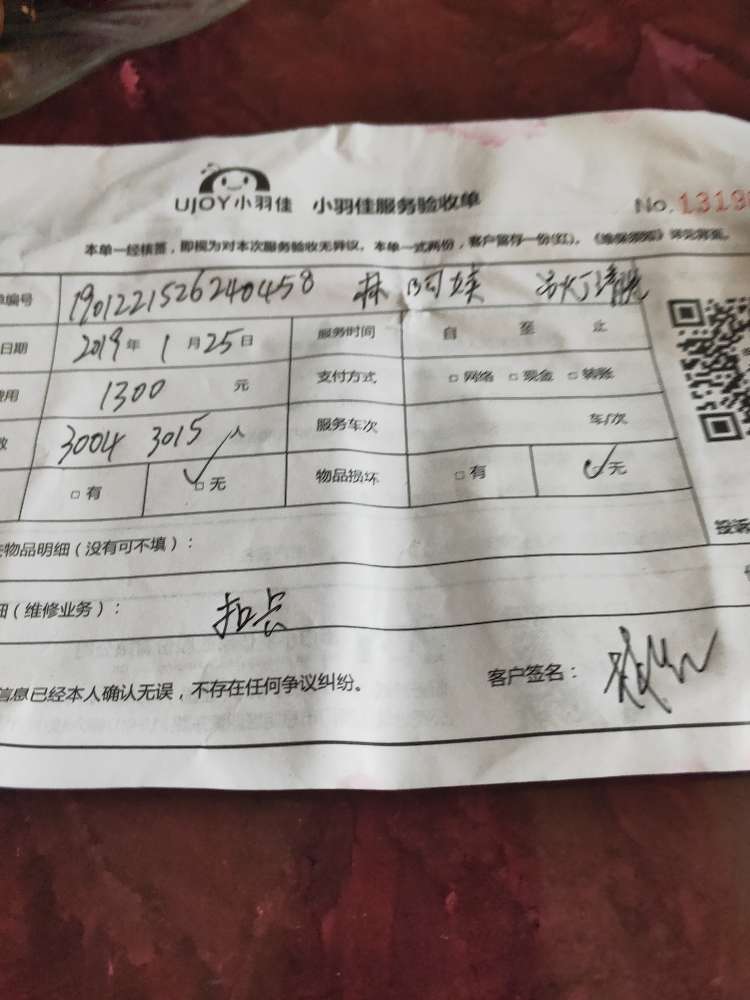 UJOY小羽佳 小羽佳服务验收单 No.1319
本单一经核签，即视为对本次服务验收无异议。本单一式两份，客户留存一份(红)。
单编号 1901221526240458 林阿姨 水灯清洗
日期 2019年1月25日 服务时间 自 至 止
费用 1300 元 支付方式 □网络 □现金 □转账
数 3004 3015 人 服务车次 车/次
□有 ✓□无 物品损坏 □有 ✓无
投诉
物品明细（没有可不填）：
细（维修业务）： 扣卡
信息已经本人确认无误，不存在任何争议纠纷。 客户签名：